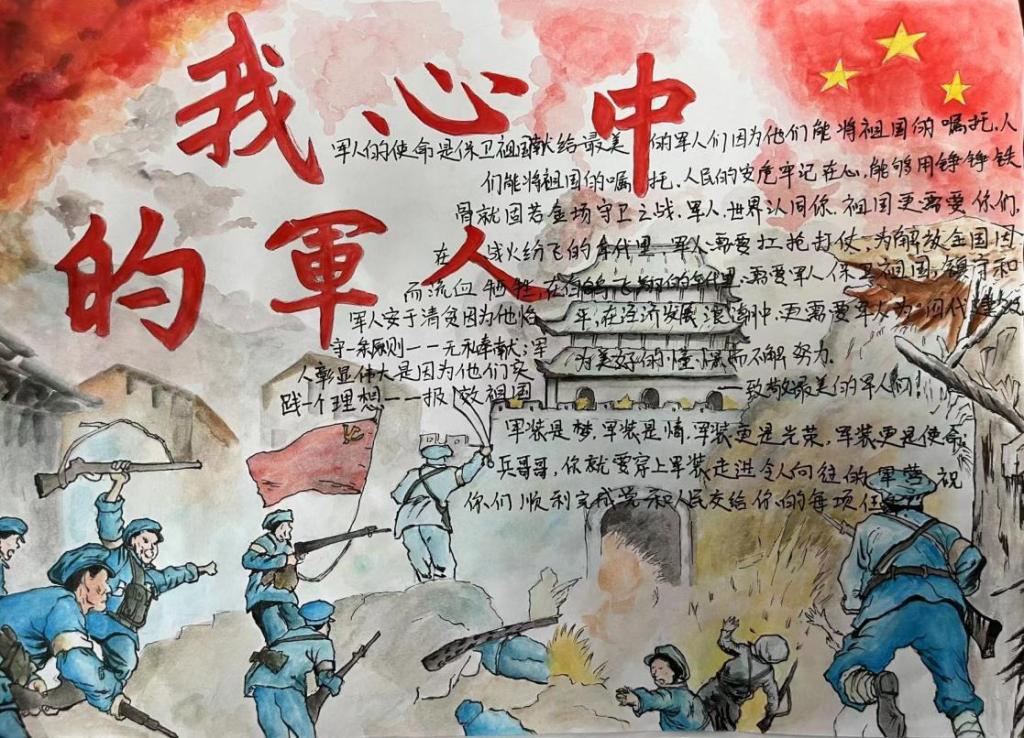 我心中
的軍人
军人的使命是保卫祖国献给最美的军人们因为他们能将祖国的嘱托、人
们能将祖国的嘱托、人民的安危牢记在心,能够用铮铮铁
骨就固若金汤守卫之战.军人,世界认同你.祖国更需要你们.
在战火纷飞的年代里,军人需要扛抢打仗,为解放全国因
而流血牺牲,在的年代里,需要军人保卫祖国,镇守和
平,在经济发展浪潮中,更需要军人为
为美好的憧憬而不解努力.
一致敬最美的军人们!
军人安于清贫因为他恪
守一条原则一一无私奉献;军
人彰显伟大是因为他们实
践一个理想一一报效祖国
军装是梦,军装是情,军装更是光荣,军装更是使命;
兵哥哥,你就要穿上军装走进令人向往的军营祝
你们顺利完成党和人民交给你的每项任